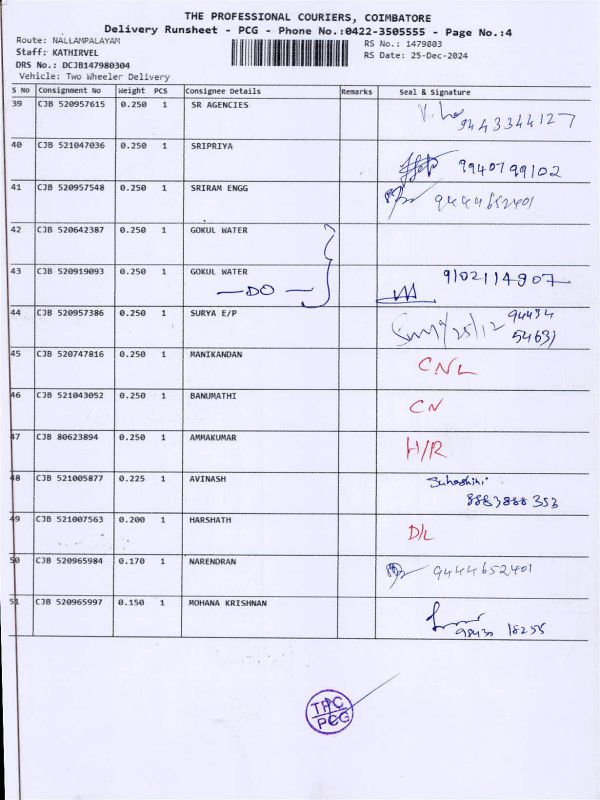 THE PROFESSIONAL COURIERS, COIMBATORE
Delivery Runsheet - PCG - Phone No.:0422-3505555 - Page No.:4
Route: NALLAMPALAYAM
Staff: KATHIRVEL
DRS No.: DCJB147980304
Vehicle: Two Wheeler Delivery
RS No.: 1479803
RS Date: 25-Dec-2024
S No Consignment No Weight PCS Consignee Details Remarks Seal & Signature
39 CJB 520957615 0.250 1 SR AGENCIES 9443344127
40 CJB 521047036 0.250 1 SRIPRIYA 9940799102
41 CJB 520957548 0.250 1 SRIRAM ENGG 9444652401
42 CJB 520642387 0.250 1 GOKUL WATER
43 CJB 520919093 0.250 1 GOKUL WATER 9102114907
— DO —
44 CJB 520957386 0.250 1 SURYA E/P 25/12 94434
54631
45 CJB 520747816 0.250 1 MANIKANDAN CNL
46 CJB 521043052 0.250 1 BANUMATHI CN
47 CJB 80623894 0.250 1 AMMAKUMAR H/R
48 CJB 521005877 0.225 1 AVINASH Suhashini
8883888353
49 CJB 521007563 0.200 1 HARSHATH D/L
50 CJB 520965984 0.170 1 NARENDRAN 9444652401
51 CJB 520965997 0.150 1 MOHANA KRISHNAN 98430 18255
TPC
PCG